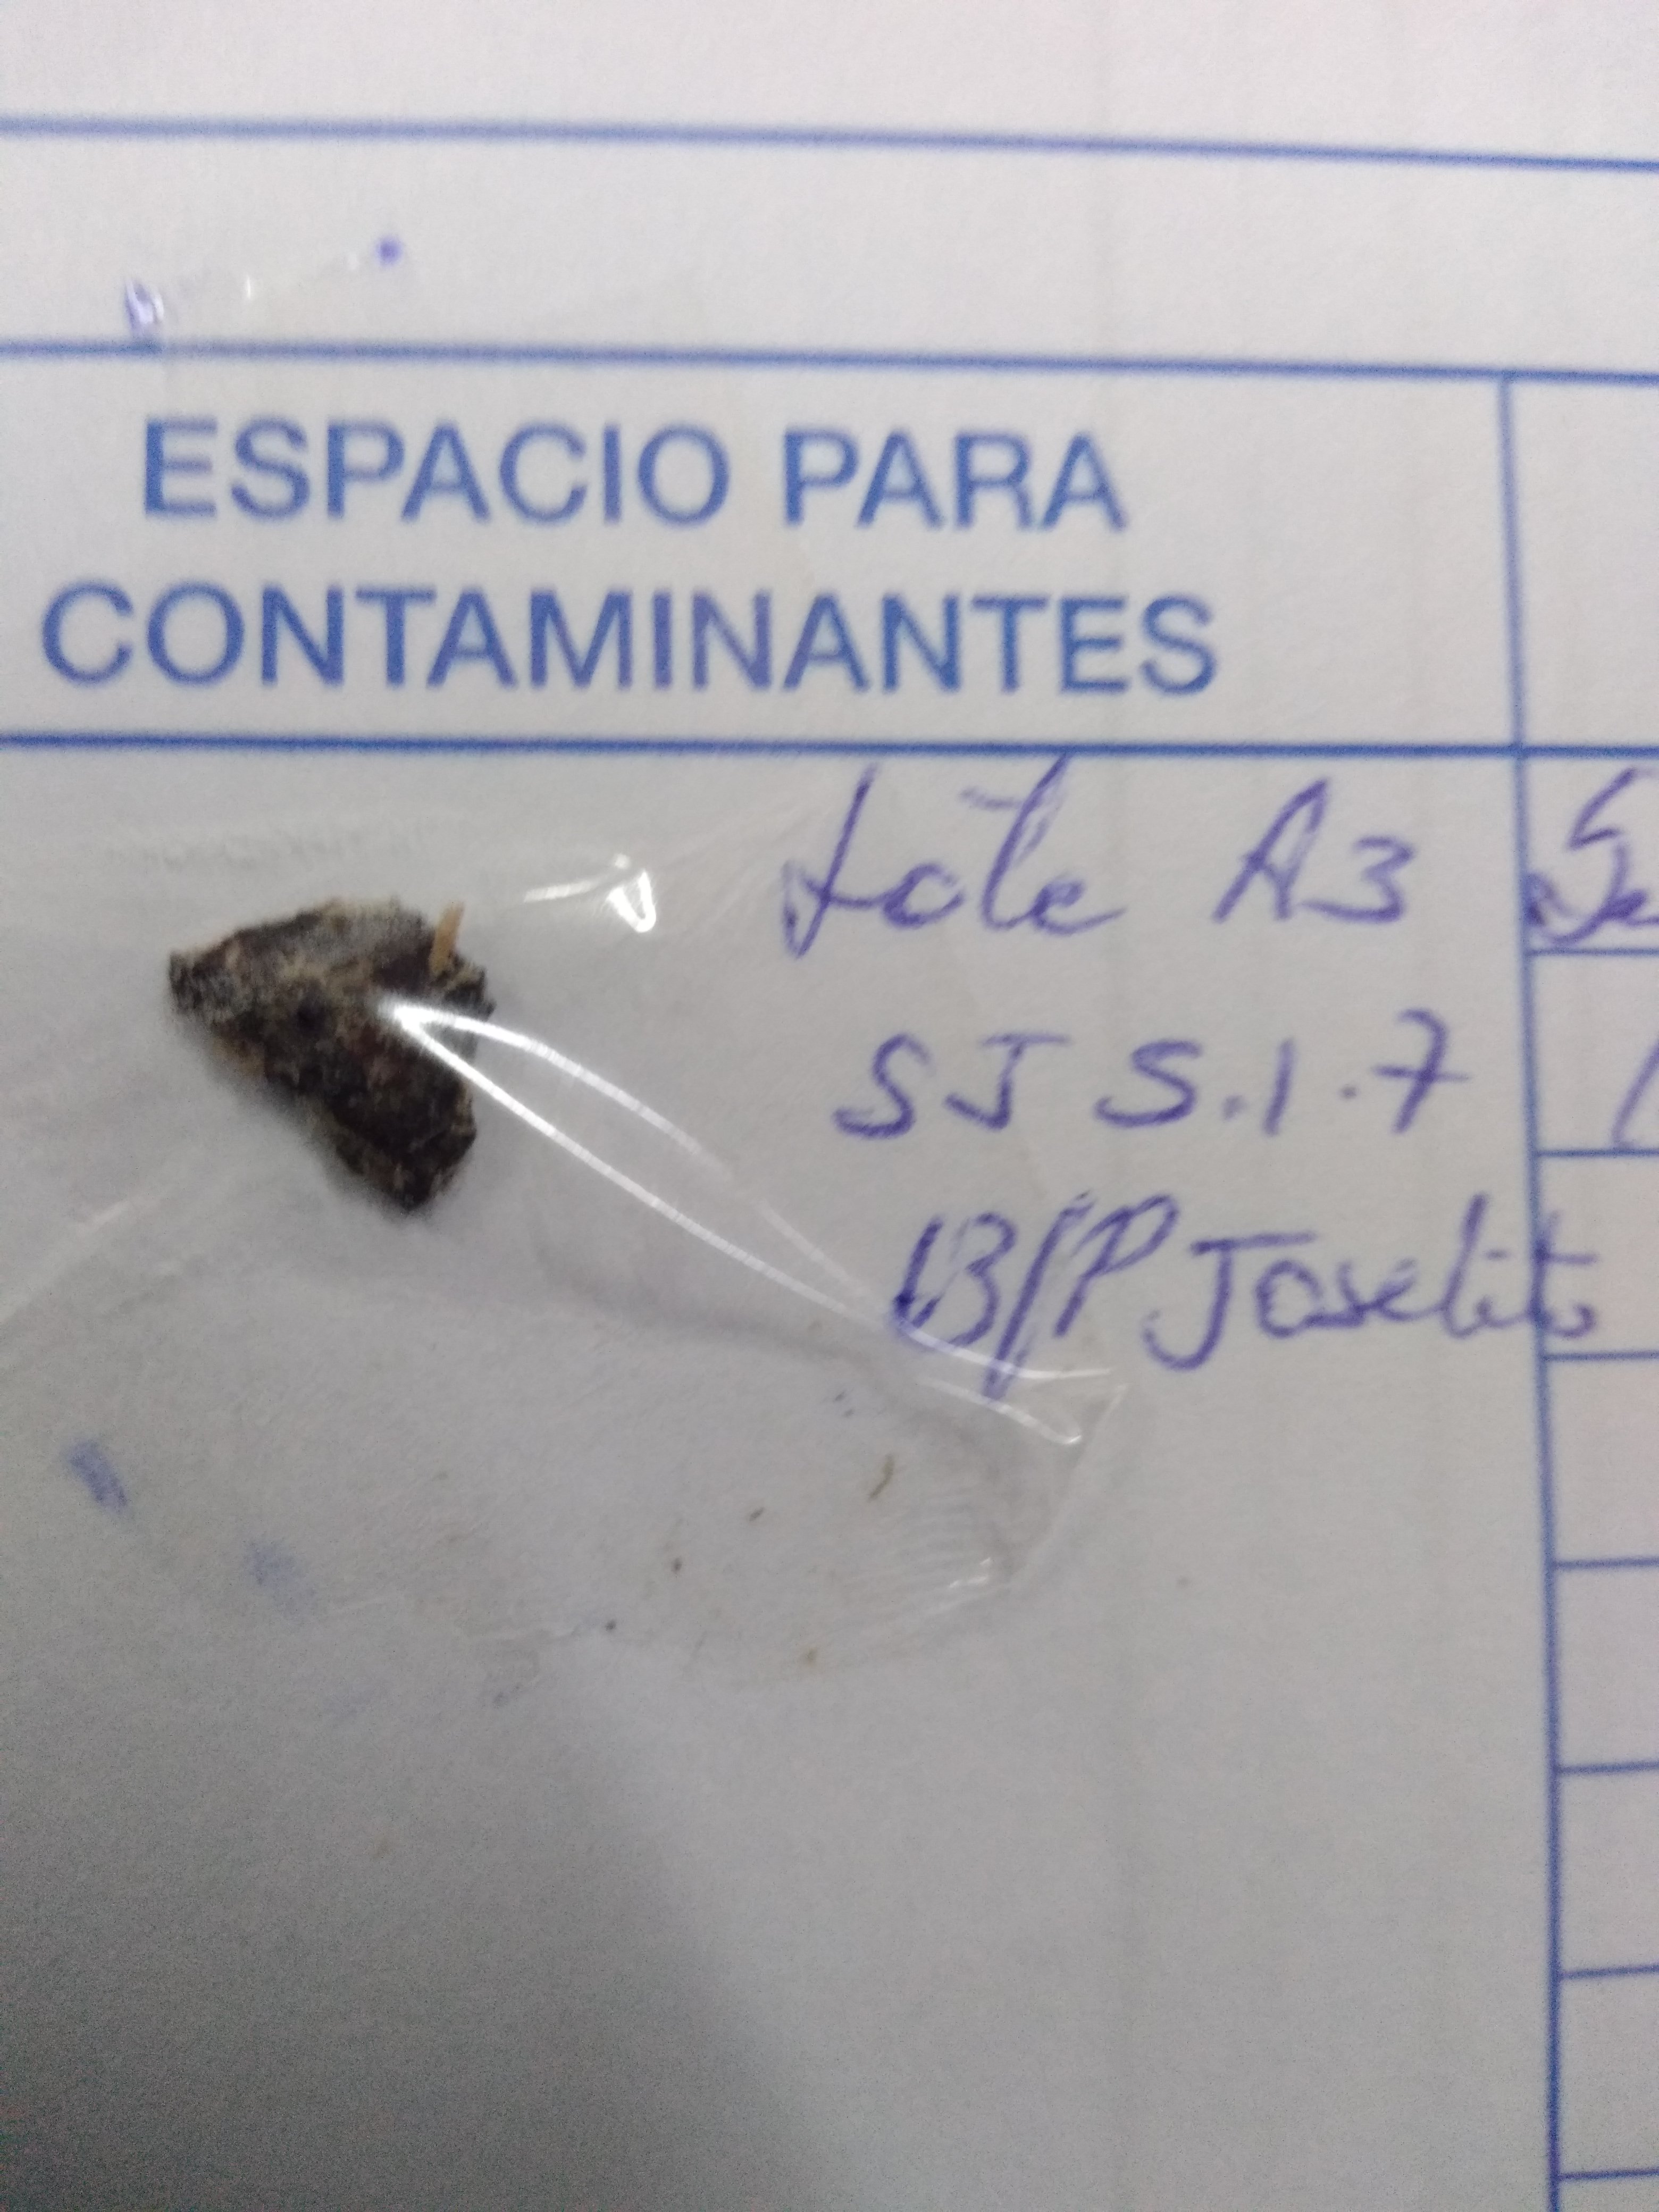 ESPACIO PARA
CONTAMINANTES
Lote A3
SJ S.1.7
B/P Joselito